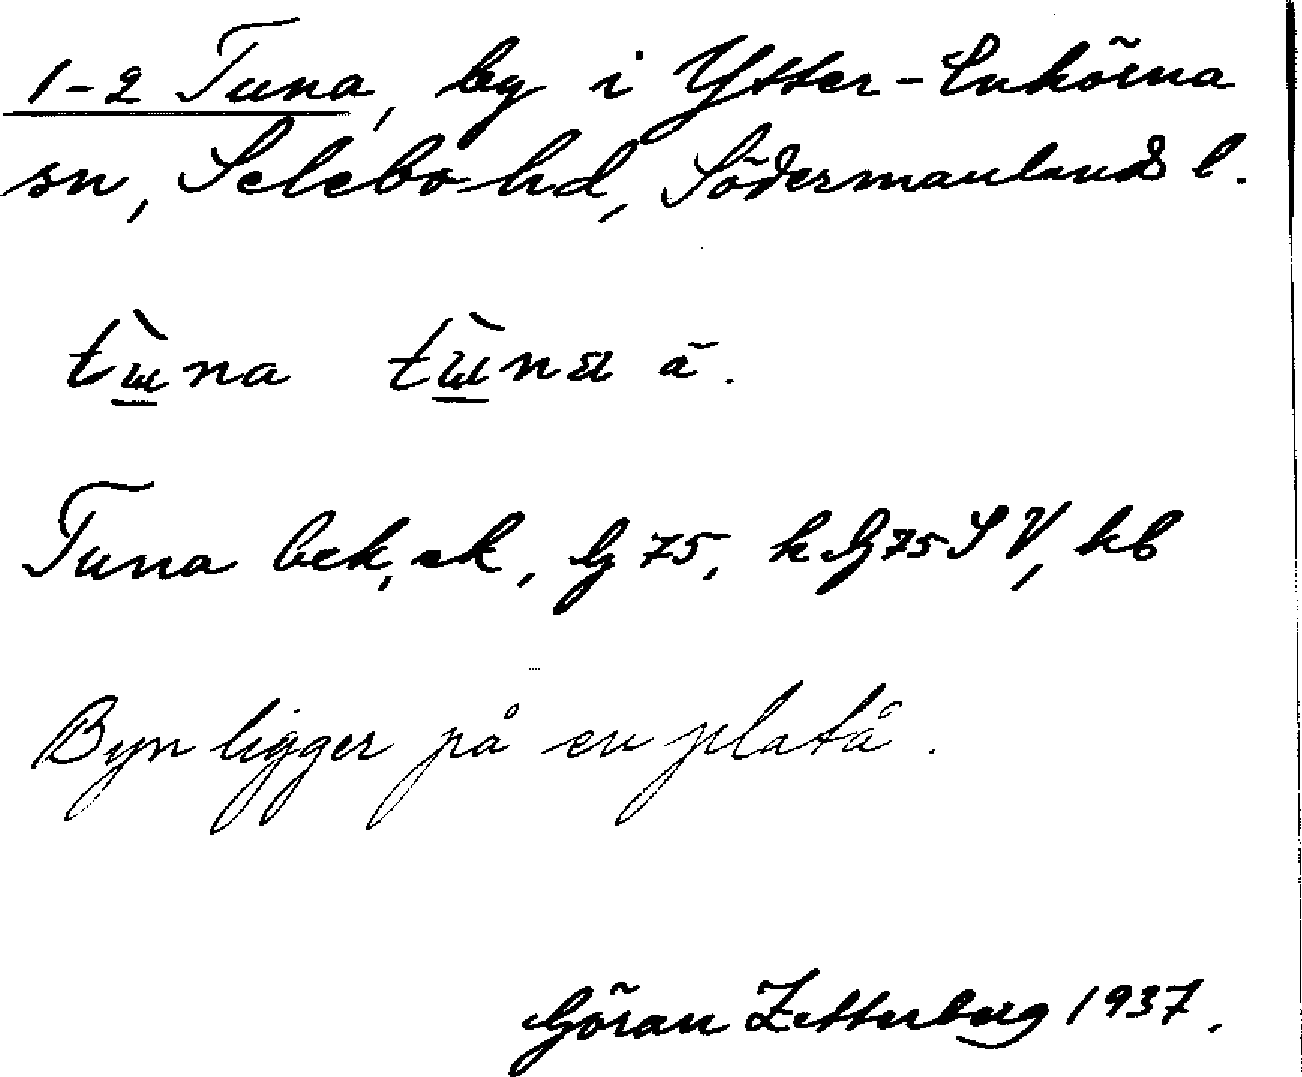 1-2 Tuna, by i Ytter-Enhörna
sn, Selebo hd, Södermanlands l.
tɯ̀na tɯ̀na ä.
Tuna bek, ek, G 75, k G 75 SV, kb
Byn ligger på en platå.
Göran Zetterberg 1937.